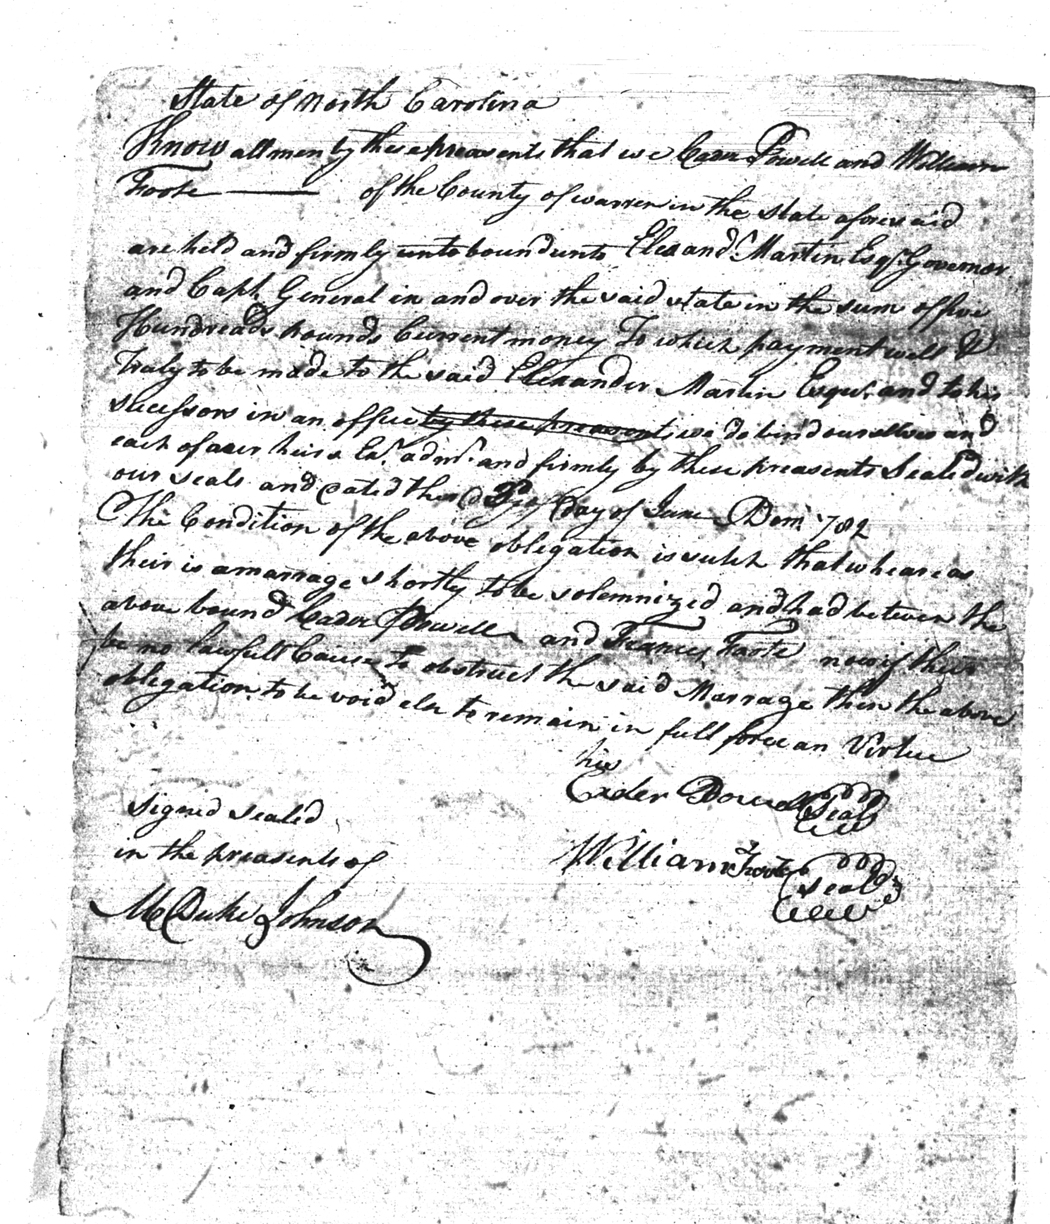 State of North Carolina
Know all men by these preasents that we Cader Powell and William
Foote of the County of warren in the state aforesaid
are held and firmly unto bound unto Elexand.r Martin Esq.r Governor
and Capt. General in and over the said state in the sum of five
Hundreads pounds Current money To which payment well &
truly to be made to the said Elexander Martin Esqu.r and to his
sucessors in an office by these preasents we do bind ourselves and
each of aeur heirs Ex.r adm.r and firmly by these preasents Sealed with
our seals and dated the day of June Dom 1782
The Condition of the above obligation is such that wheareas
their is a marrage shortly to be solemnized and had between the
above bound Cader Powell and Frances Foote now if their
be no lawfull Cause to obstruct the said Marrage then the above
obligation to be void else to remain in full force an Virtue
his
Cader Powell Seal
Signed sealed
in the preasents of
William Foote Seal
M Duke Johnson